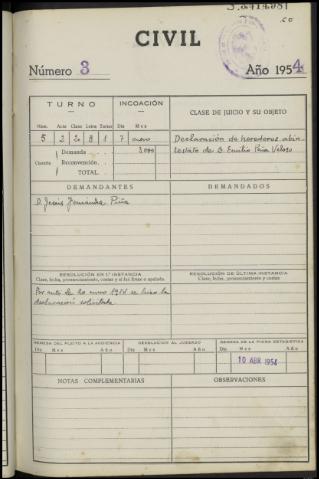 CIVIL
Número 3
Año 1954
TURNO
INCOACIÓN
CLASE DE JUICIO Y SU OBJETO
Núm. Acto Clase Letra Turno Día Mes
5 2 20 8 1 7 enero
Declaración de herederos abin
testato de D. Emilio Peña Veloso
Cuantía
Demanda
3.000
Reconvención
TOTAL
DEMANDANTES
DEMANDADOS
D. Jesús Fernández Piña
RESOLUCIÓN EN 1.ª INSTANCIA
Clase, fecha, pronunciamiento, costas y si fué firme o apelada.
RESOLUCIÓN DE ÚLTIMA INSTANCIA
Clase, fecha, pronunciamiento y costas
Por auto de 20 enero 1954 se hizo la
declaración solicitada
REMESA DEL PLEITO A LA AUDIENCIA
DEVOLUCIÓN AL JUZGADO
REMESA DE LA FICHA ESTADÍSTICA
Día Mes Año
Día Mes Año
Día Mes Año
10 ABR 1954
NOTAS COMPLEMENTARIAS
OBSERVACIONES